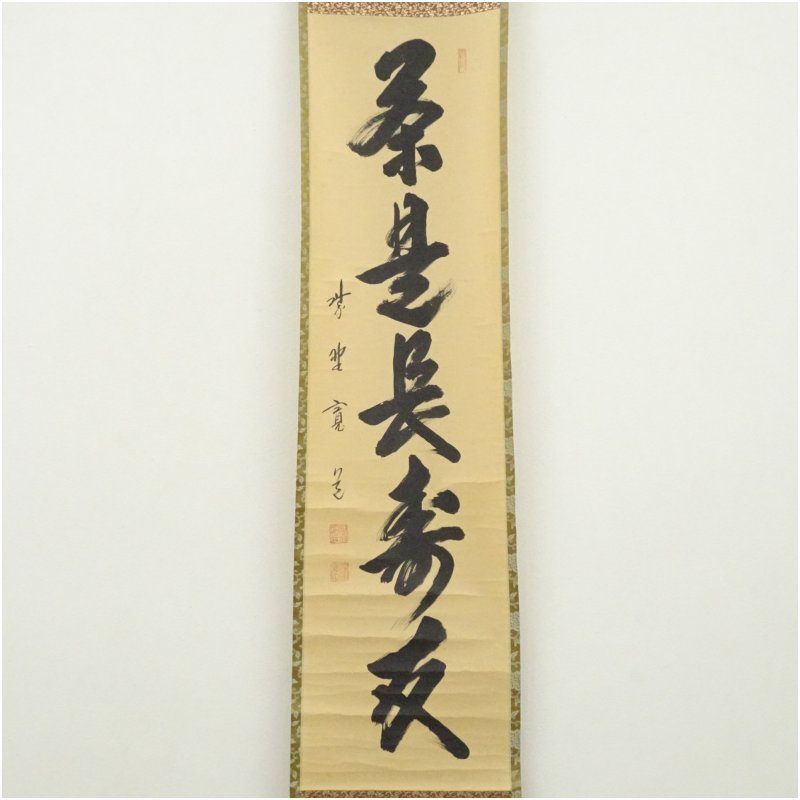 茶是長壽友
紫野寛道